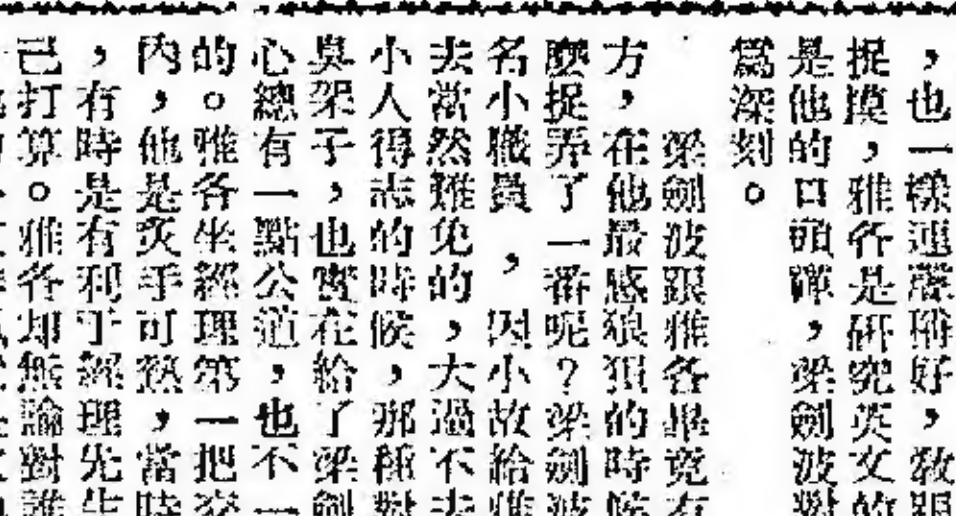 ，也一樣連聲稱好，敎跟
捉摸，雅各是硏究英文的
是他的口頭禪，梁劍波對
爲深刻。
梁劍波跟雅各畢竟有
方，在他最感狼狽的時候
麼捉弄了一番呢？梁劍波
名小職員，因小故給雅
去當然難免的，大過不去
小人得志的時候，那種對
臭架子，也實在給了梁劍
心總有一點公道，也不一
的。雅各坐經理第一把交
內，他是炙手可熱，當時
，有時是有利于經理先生
己打算。雅各却無論對誰